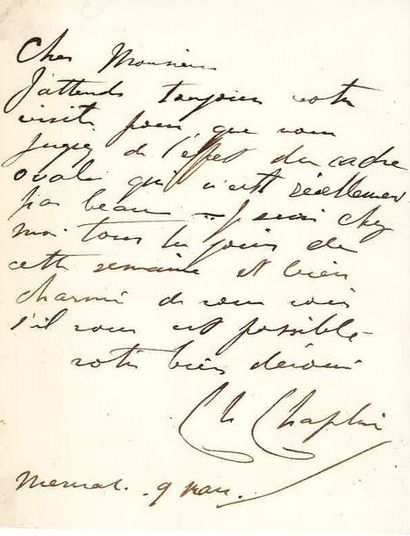 Cher Monsieur
J'attends toujours votre
visite pour que vous
jugiez de l'effet du cadre
ovale qui n'est réellement
pas beau – Je serai chez
moi tous les jours de
cette semaine et bien
charmé de vous voir
s'il vous est possible –
votre bien dévoué
Ch Chaplin
9